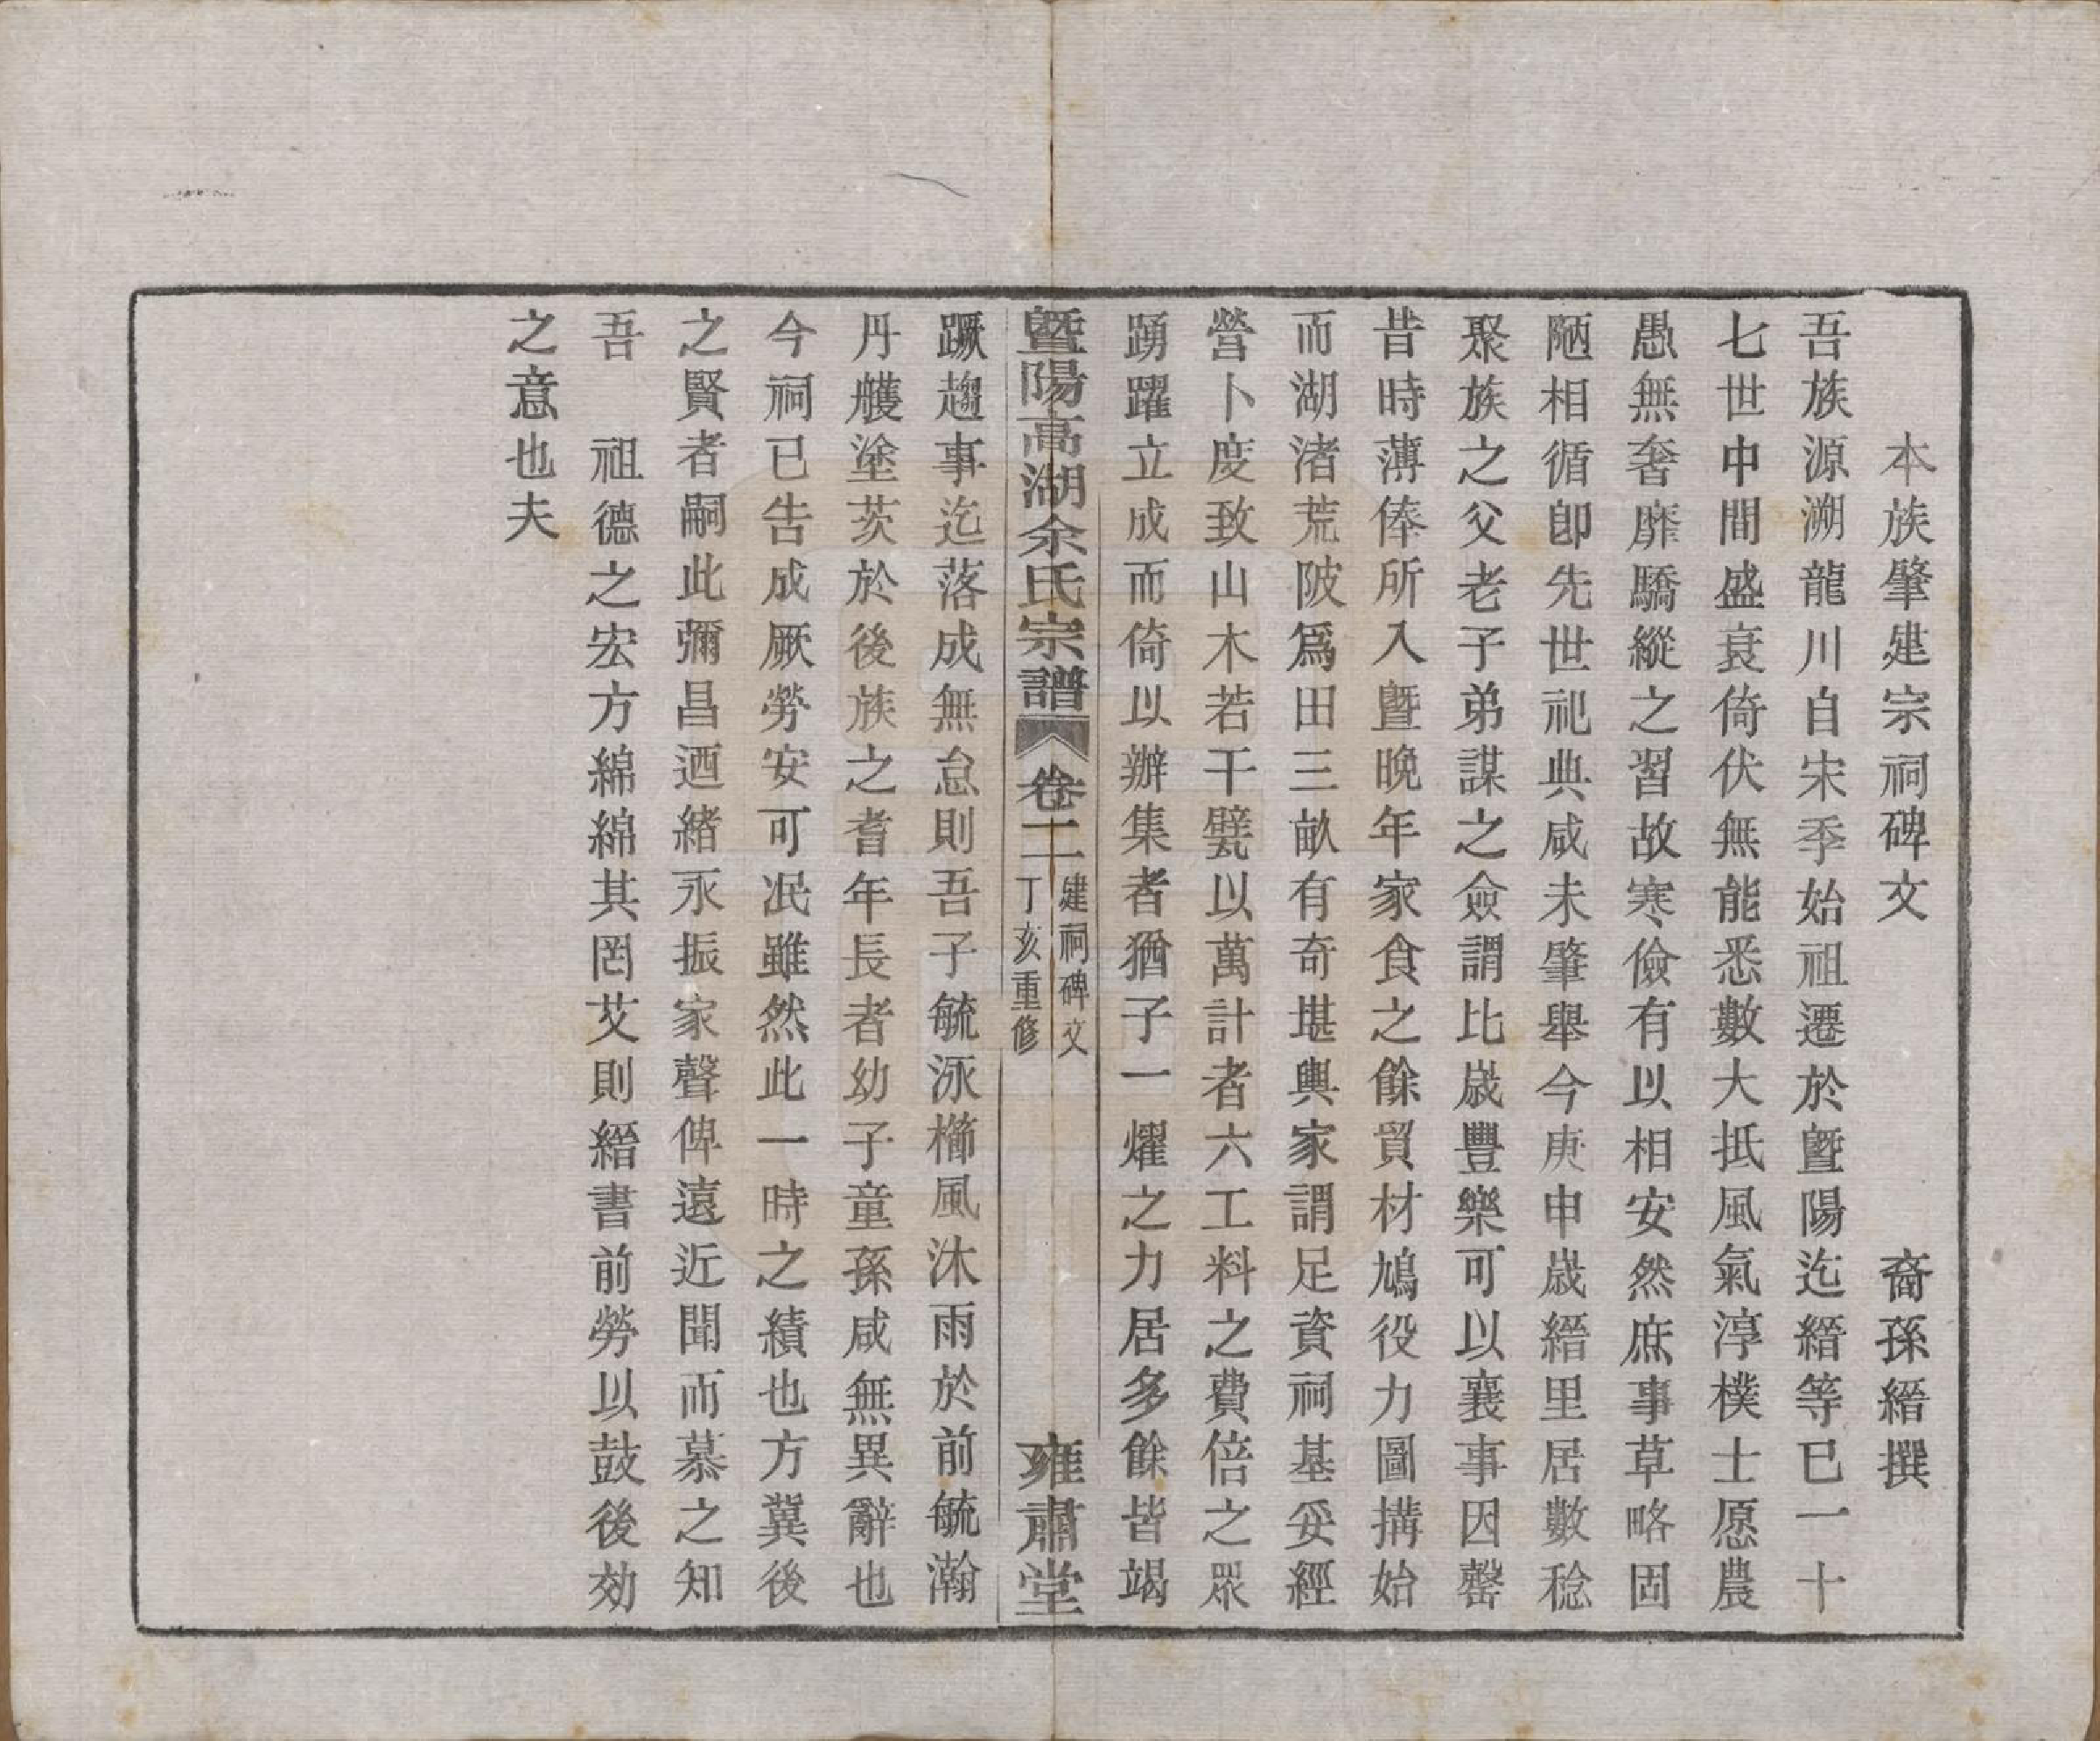 本族肇建宗祠碑文　裔孫縉撰
吾族源溯龍川自宋季始祖遷於暨陽迄縉等已一十
七世中間盛衰倚伏無能悉數大抵風氣淳樸士愿農
愚無奢靡驕縱之習故寒儉有以相安然庶事草略固
陋相循卽先世祀典咸未肇舉今庚申歲縉里居數稔
聚族之父老子弟謀之僉謂比歲豐樂可以襄事因罄
昔時薄俸所入暨晚年家食之餘貿材鳩役力圖搆始
而湖渚荒陂爲田三畝有奇堪輿家謂足資祠基妥經
營卜度致山木若干甓以萬計者六工料之費倍之眾
踴躍立成而倚以辦集者猶子一燿之力居多餘皆竭
暨陽高湖余氏宗譜　卷二　建祠碑文　丁亥重修　雍肅堂
蹶趨事迄落成無怠則吾子毓泳櫛風沐雨於前毓瀚
丹艧塗茨於後族之耆年長者幼子童孫咸無異辭也
今祠已告成厥勞安可泯雖然此一時之績也方冀後
之賢者嗣此彌昌迺緒永振家聲俾遠近聞而慕之知
吾　祖德之宏方綿綿其罔艾則縉書前勞以鼓後効
之意也夫